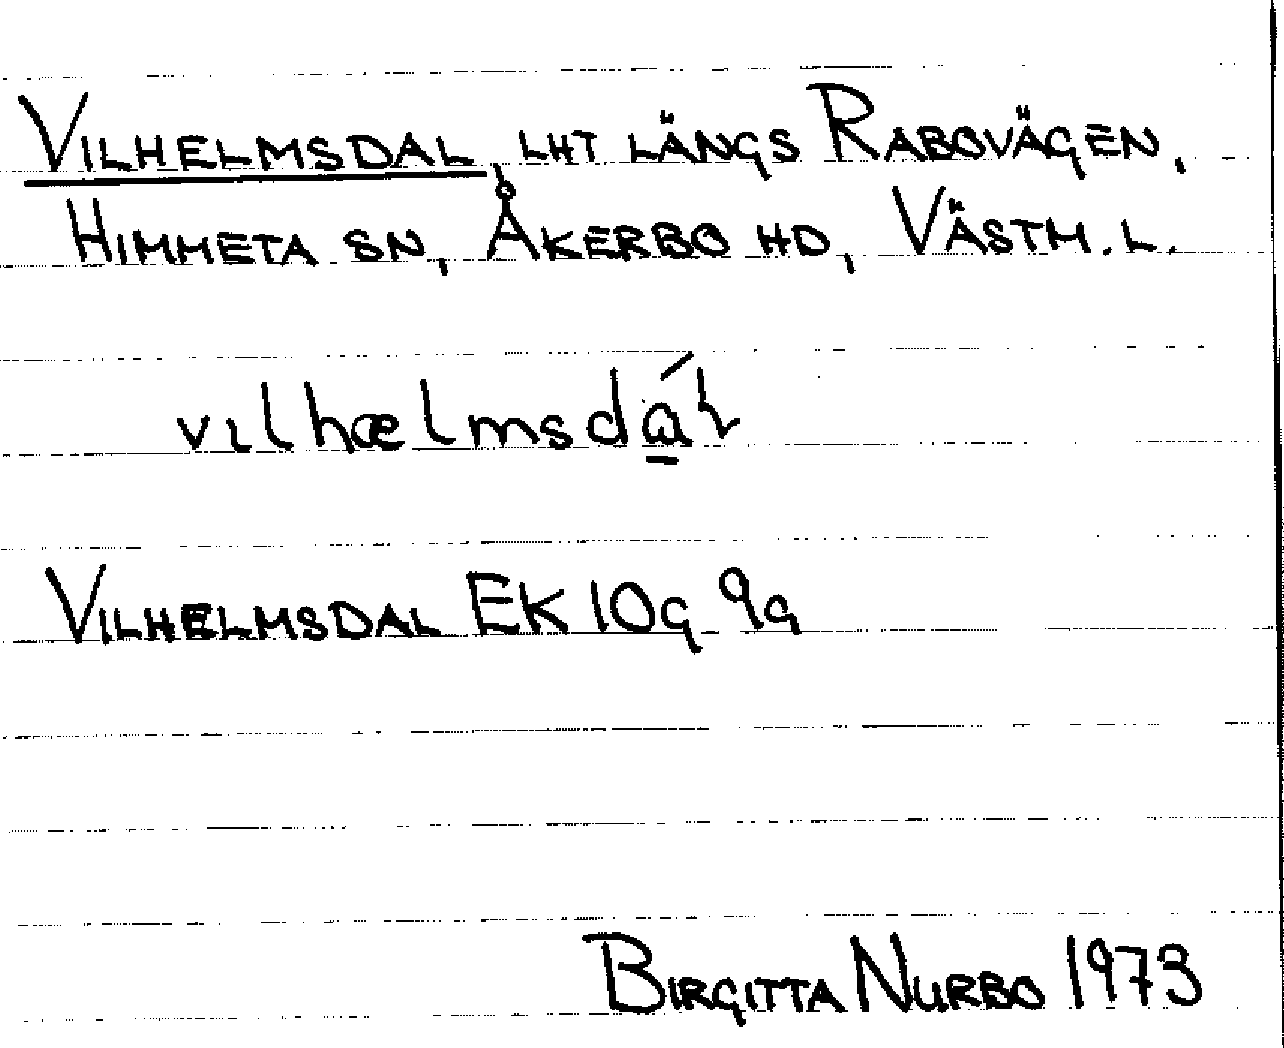 VILHELMSDAL, LHT LÄNGS RABOVÄGEN,
HIMMETA SN, ÅKERBO HD, VÄSTM. L.
vılhælmsdá̱ɬ
VILHELMSDAL EK 10G 9a
BIRGITTA NURBO 1973